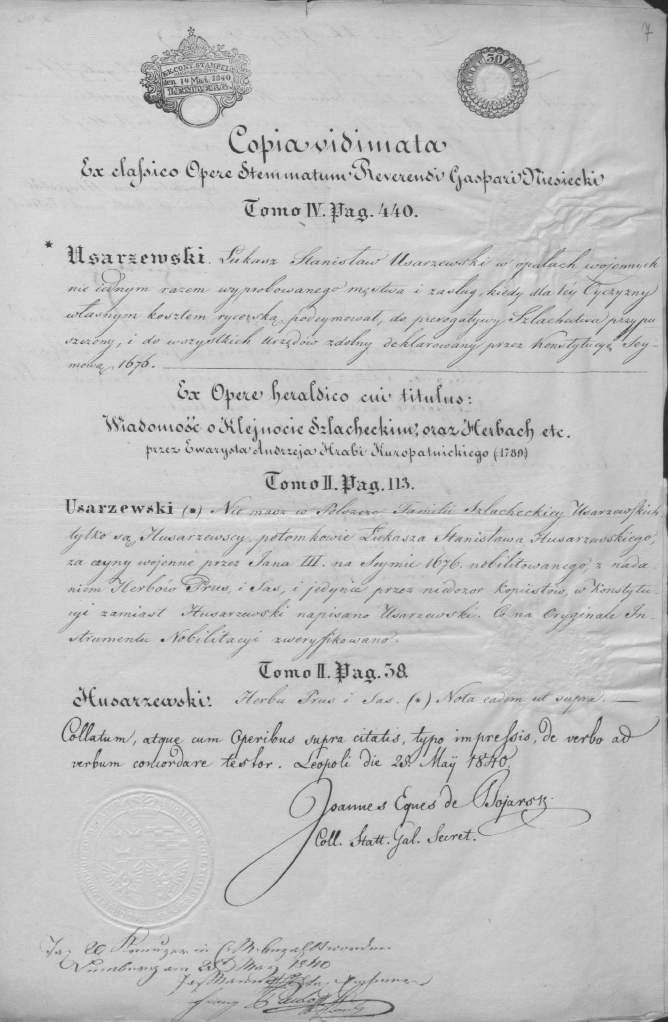 7
EX CONT. STAMPELI
den 14 Mai 1840
30
Copia vidimata
Ex classico Opere Stemmatum Reverendi Gaspari Niesiecki
Tomo IV. Pag. 440.
* Usarzewski. Łukasz Stanisław Usarzewski w opałach woiennych
nie iednym razem wyprobowanego męstwa i zasług, kiedy dla tey Oyczyzny
własnym kosztem rycerską podeymował, do prerogatywy Szlachectwa przypu
szczony, i do wszystkich Urzędów zdolny deklarowany przez Konstytucyę Sey-
mową 1676.
Ex Opere heraldico cui titulus:
Wiadomość o Klejnocie Szlacheckim, oraz Herbach etc.
przez Ewarysta Andrzeja Hrabi Kuropatnickiego (1789)
Tomo II. Pag. 113.
Usarzewski (*) Nie masz w Polszcze Familii Szlacheckiey Usarzewskich
tylko są Husarzewscy potomkowie Łukasza Stanisława Husarzewskiego,
za czyny wojenne przez Jana III. na Seymie 1676. nobilitowanego, z nada
niem Herbów Prus, i Sas, i jedynie przez niedozor kopiistów, w Konstytu
cyi zamiast Husarzewski napisano Usarzewski. Co na Oryginale In-
strumentu Nobilitacyi zweryfikowano.
Tomo II. Pag. 38.
Husarzewski: Herbu Prus i Sas. (*) Nota eadem ut supra.
Collatum, atque cum Operibus supra citatis, typo impressis, de verbo ad
verbum concordare testor. Leopoli die 28. Maÿ 1840.
Joannes Eques de Bojarsk
Coll. Statt. Gal. Secret.
20 Kreuzer in C. M. bezalt worden
Lemberg am 28 May 1840